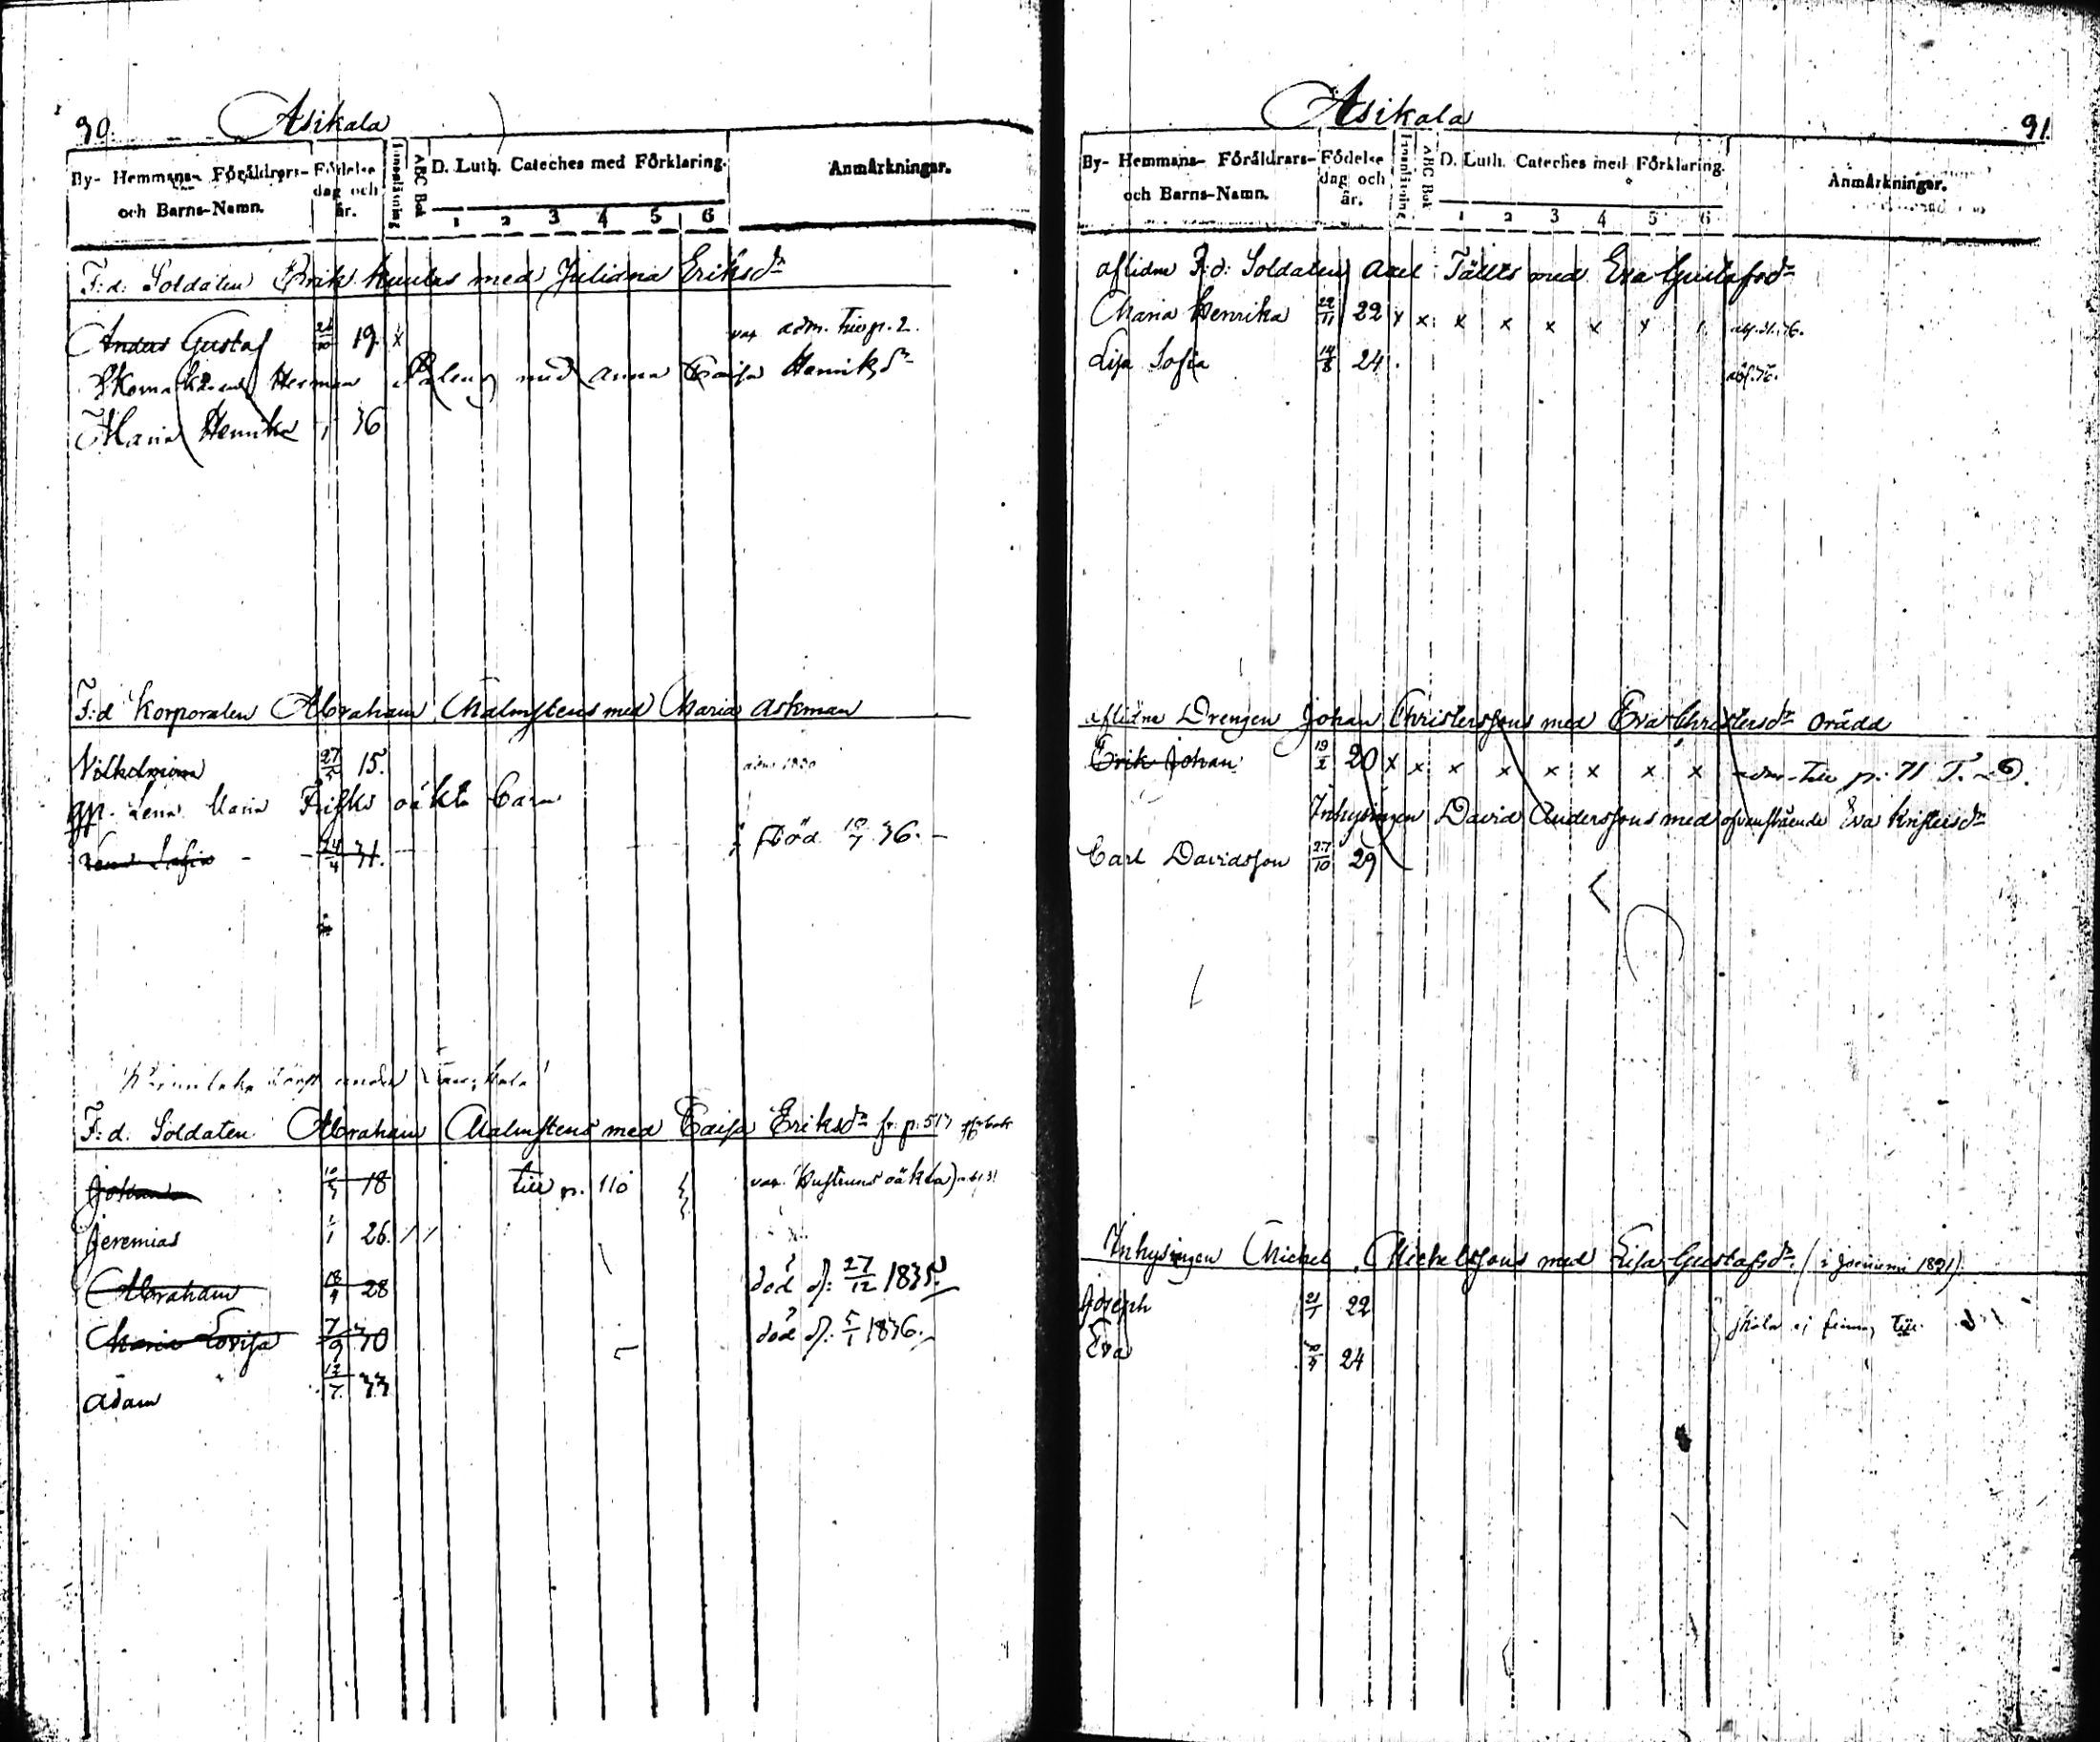 90.
Asikala
By- Hemmans- Föräldrars- och Barns-Namn.
Födelse dag och år.
Innanläsning
ABC Bok
D. Luth. Cateches med Förklaring.
1 2 3 4 5 6
Anmärkningar.
F:d: Soldaten Erik Kuulas med Juliana Eriksdr
Anders Gustaf 19. x adm.
Herman med Anna Caisa Henriksdr
Maria Henrika 36
F:d Korporalen Abraham Malmstens med Maria Askman
27/5 15.
Lena Maria oäkta Barn
24/4 31. Död 10/7 36.
F:d. Soldaten Abraham Malmstens med Caisa Eriksdr fr: p: 517
18 till p. 110 oäkta)
Jeremias 1/1 26.
Abraham 28 död d: 27/12 1835.
Maria Lovisa 30 död d: 5/1 1836.
Adam 33
Asikala
91
By- Hemmans- Föräldrars- och Barns-Namn.
Födelse dag och år.
Innanläsning
ABC Bok
D. Luth. Cateches med Förklaring.
1 2 3 4 5 6
Anmärkningar.
aflidne F:d: Soldaten med Eva Gustafsdr
Maria Henrika 22/11 22 x x x x x x x
Lisa Sofia 14/8 24
aflidne Drengen Johan Christerssons med Eva Christersdr Orädd
Erik Johan 20 x x x x x x x x p: 71
Inhysingen David Anderssons med ofvanstående Eva Kristersdr
Carl Davidsson 27/10 29
Inhysingen Michel Michelssons med Lisa Gustafsdr (i 1821)
Joseph 21/1 22
Eva 24